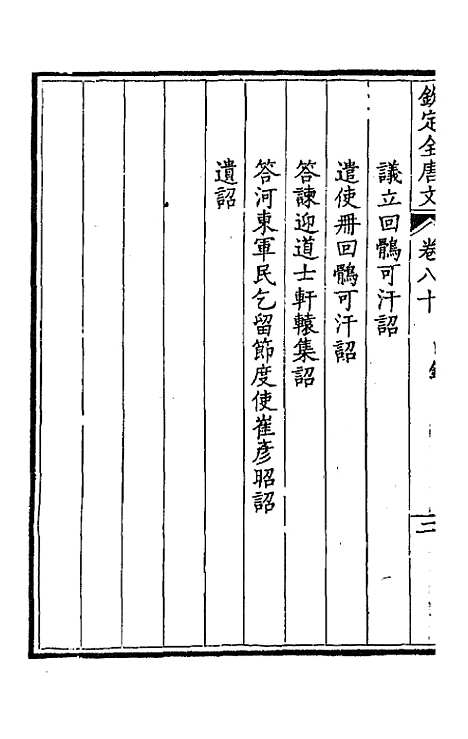 欽定全唐文 卷八十 目錄 二
議立回鶻可汗詔
遣使冊回鶻可汗詔
答諫迎道士軒轅集詔
答河東軍民乞留節度使崔彥昭詔
遺詔